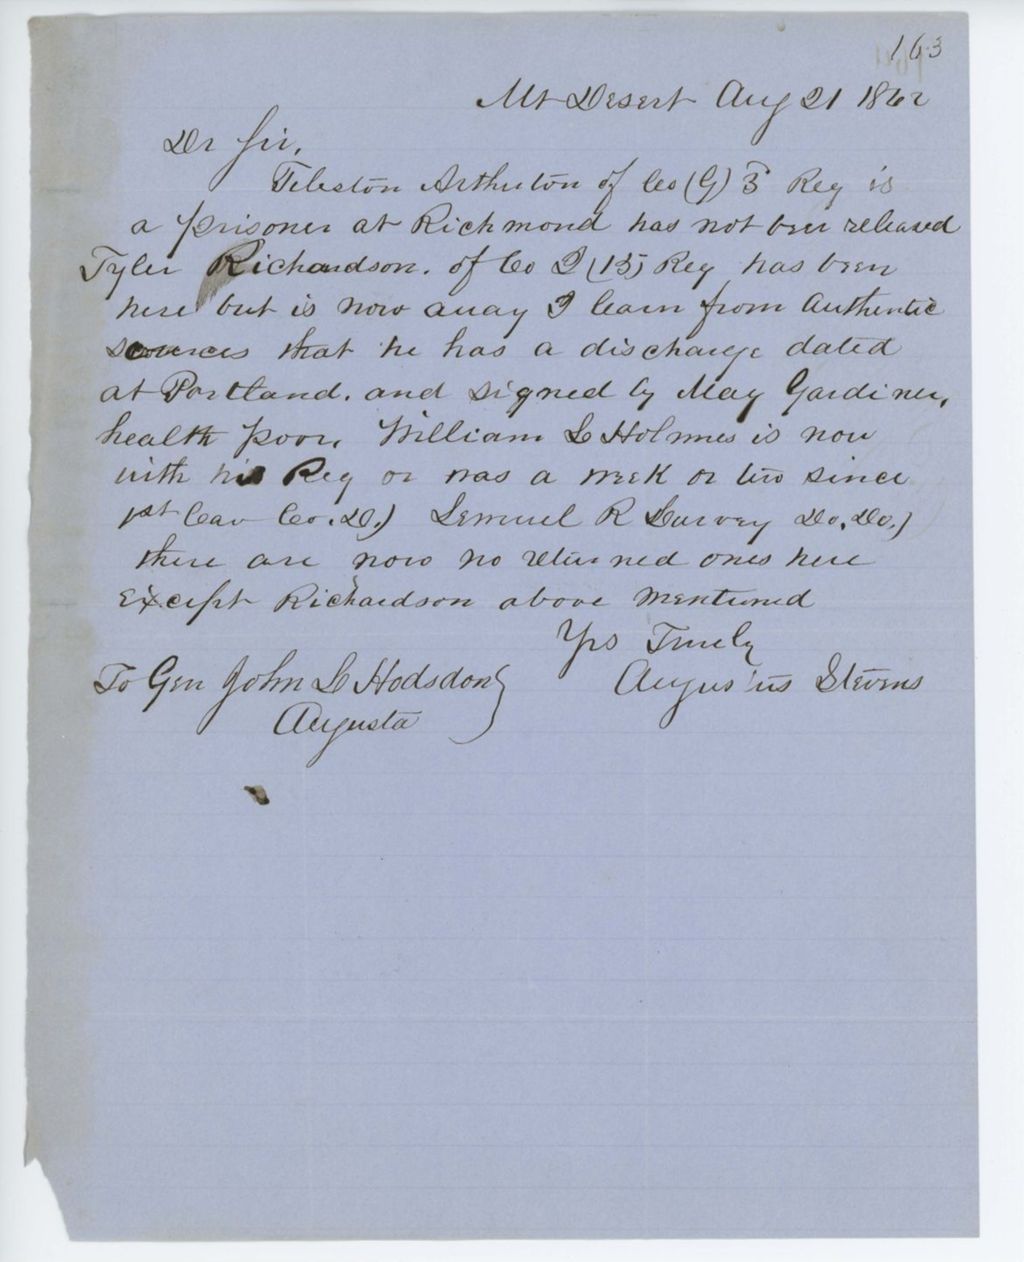 163
Mt Desert Aug 21 1862
Dr Sir,
of Co (G) 3 Reg is
a prisoner at Richmond has not been released
Tyler Richardson. of Co I (15) Reg has been
here but is now away I learn from authentic
sources that he has a discharge dated
at Portland. and signed by May Gardiner,
health poor. William L Holmes is now
with his Reg or was a week or two since
1st Cav Co. D.) Lemuel R Do. Do.)
there are now no returned ones here
Except Richardson above mentioned
Yrs Truely
To Gen John L Hodsdon } Augustus Stevens
Augusta